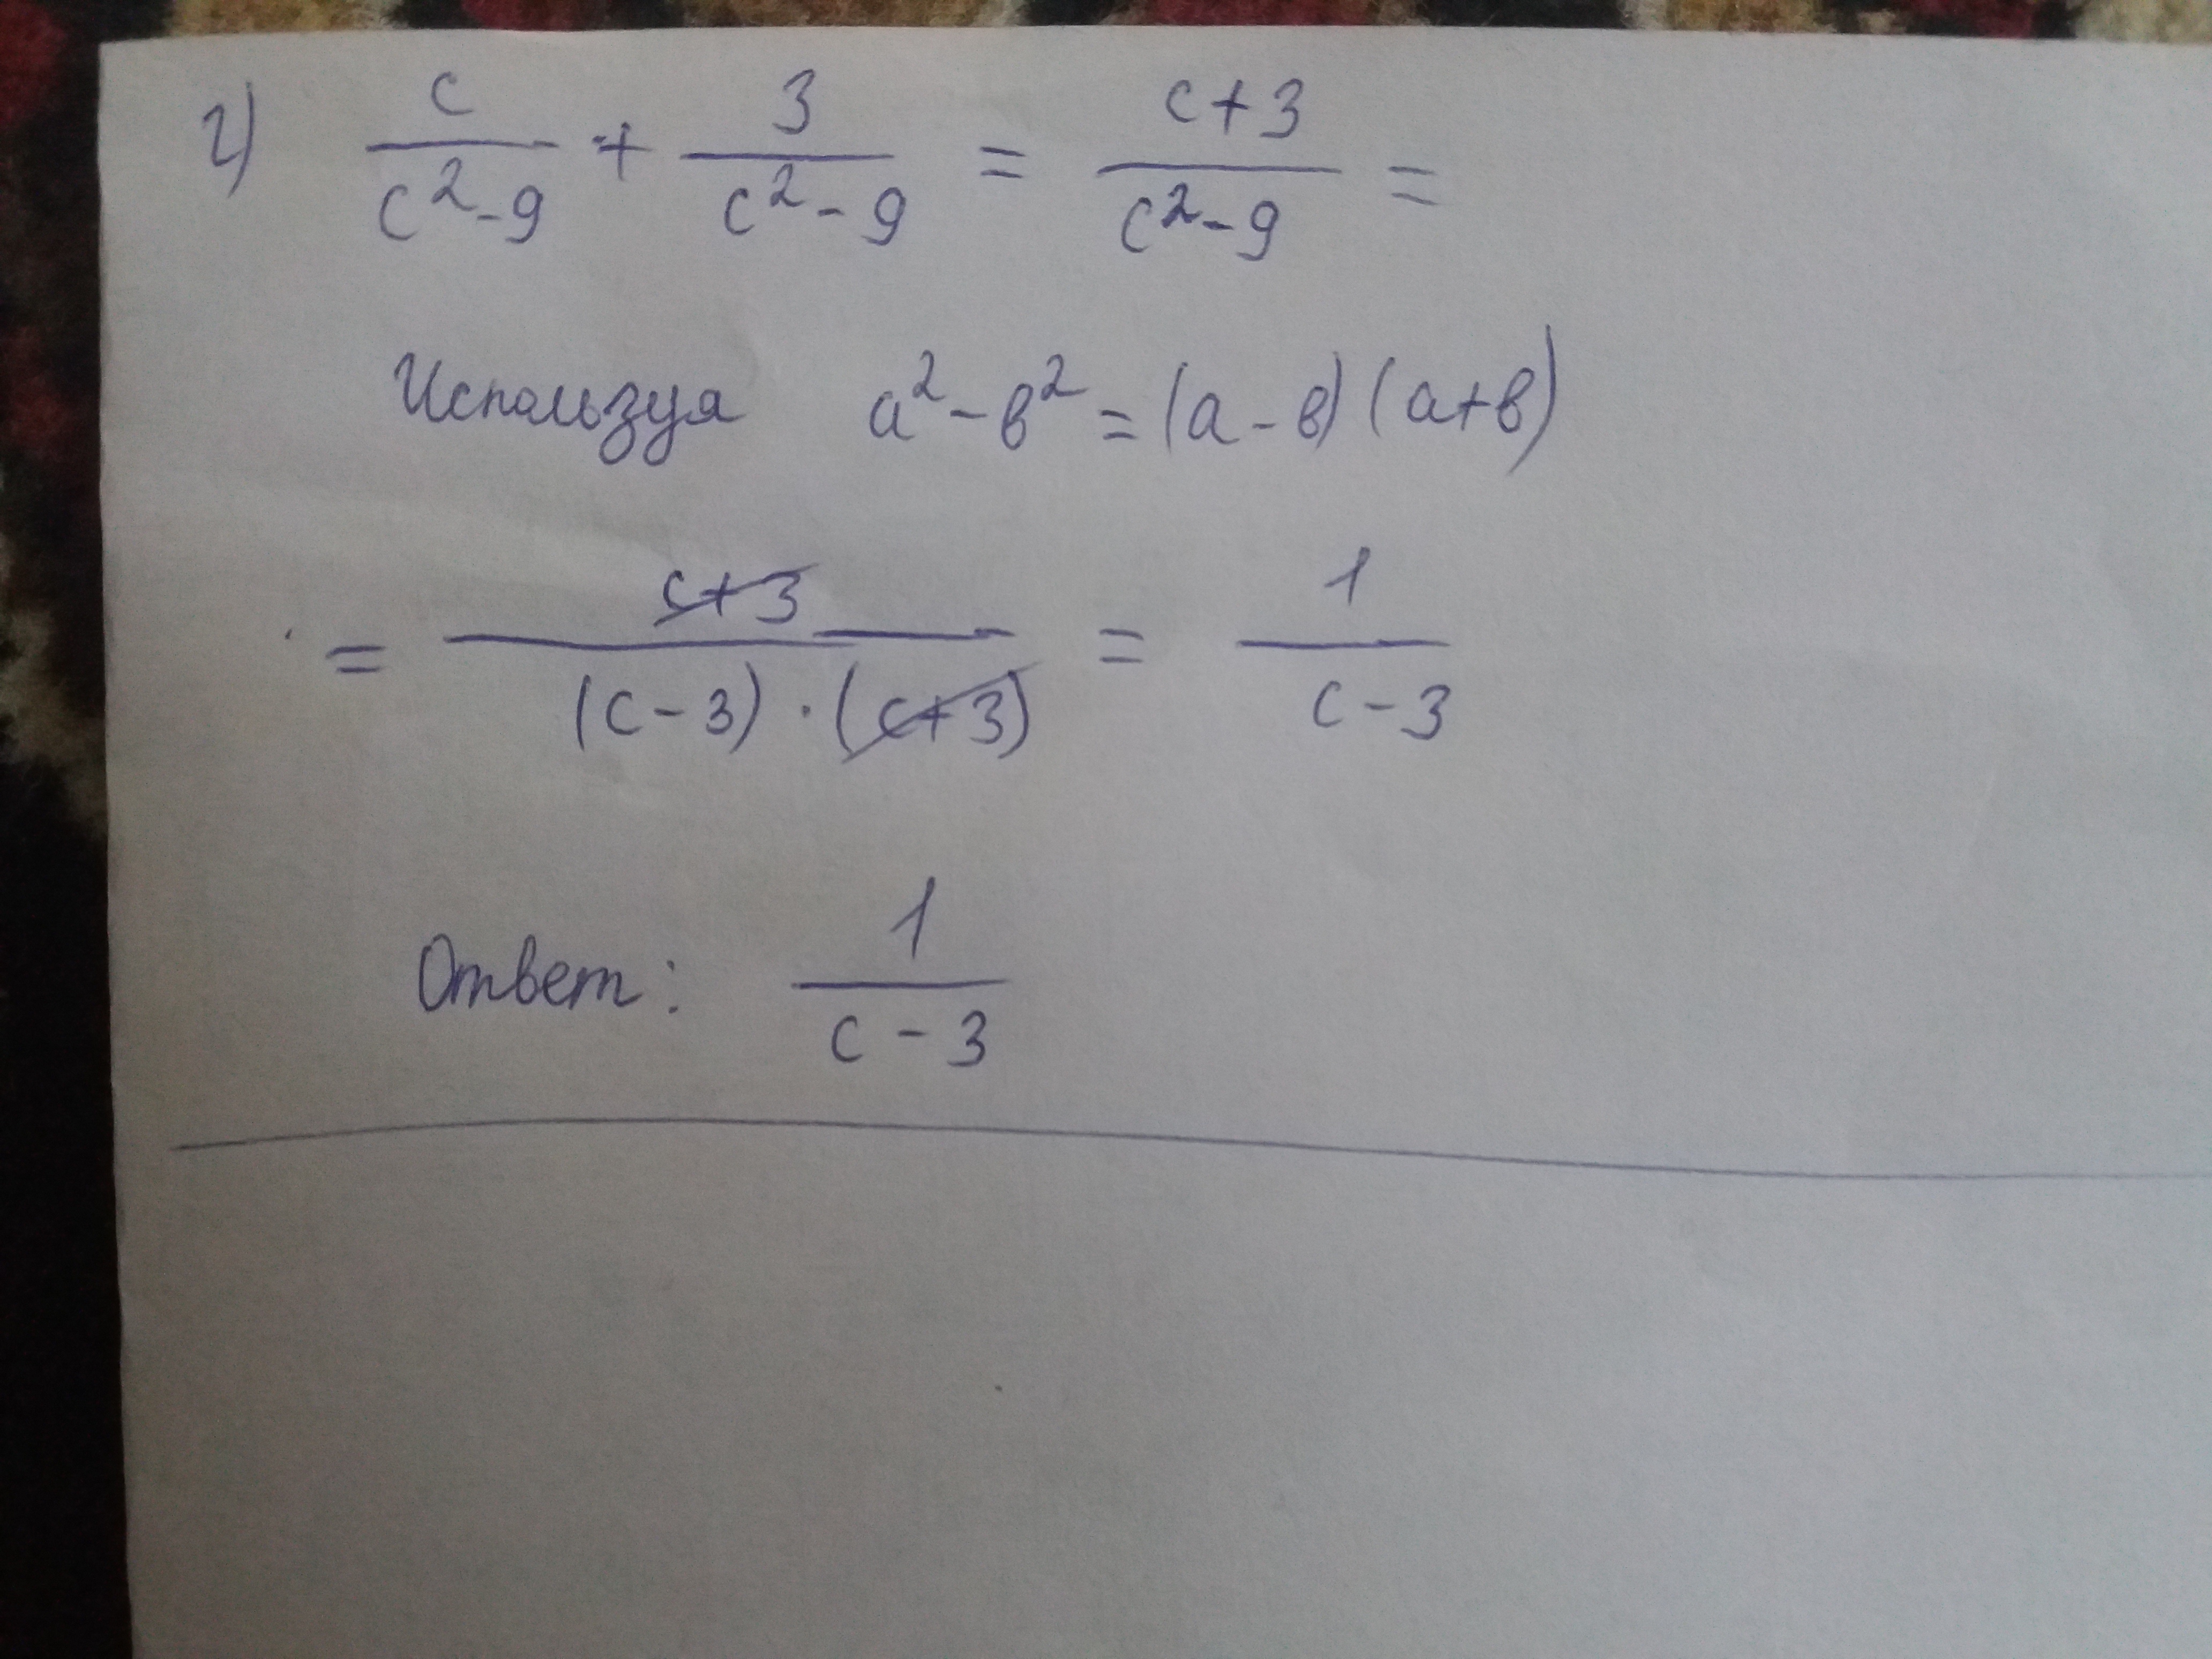 г) c/(c²-9) + 3/(c²-9) = (c+3)/(c²-9) =
Используя a²-в²=(a-в)(a+в)
= (c+3)/((c-3)·(c+3)) = 1/(c-3)
Ответ: 1/(c-3)